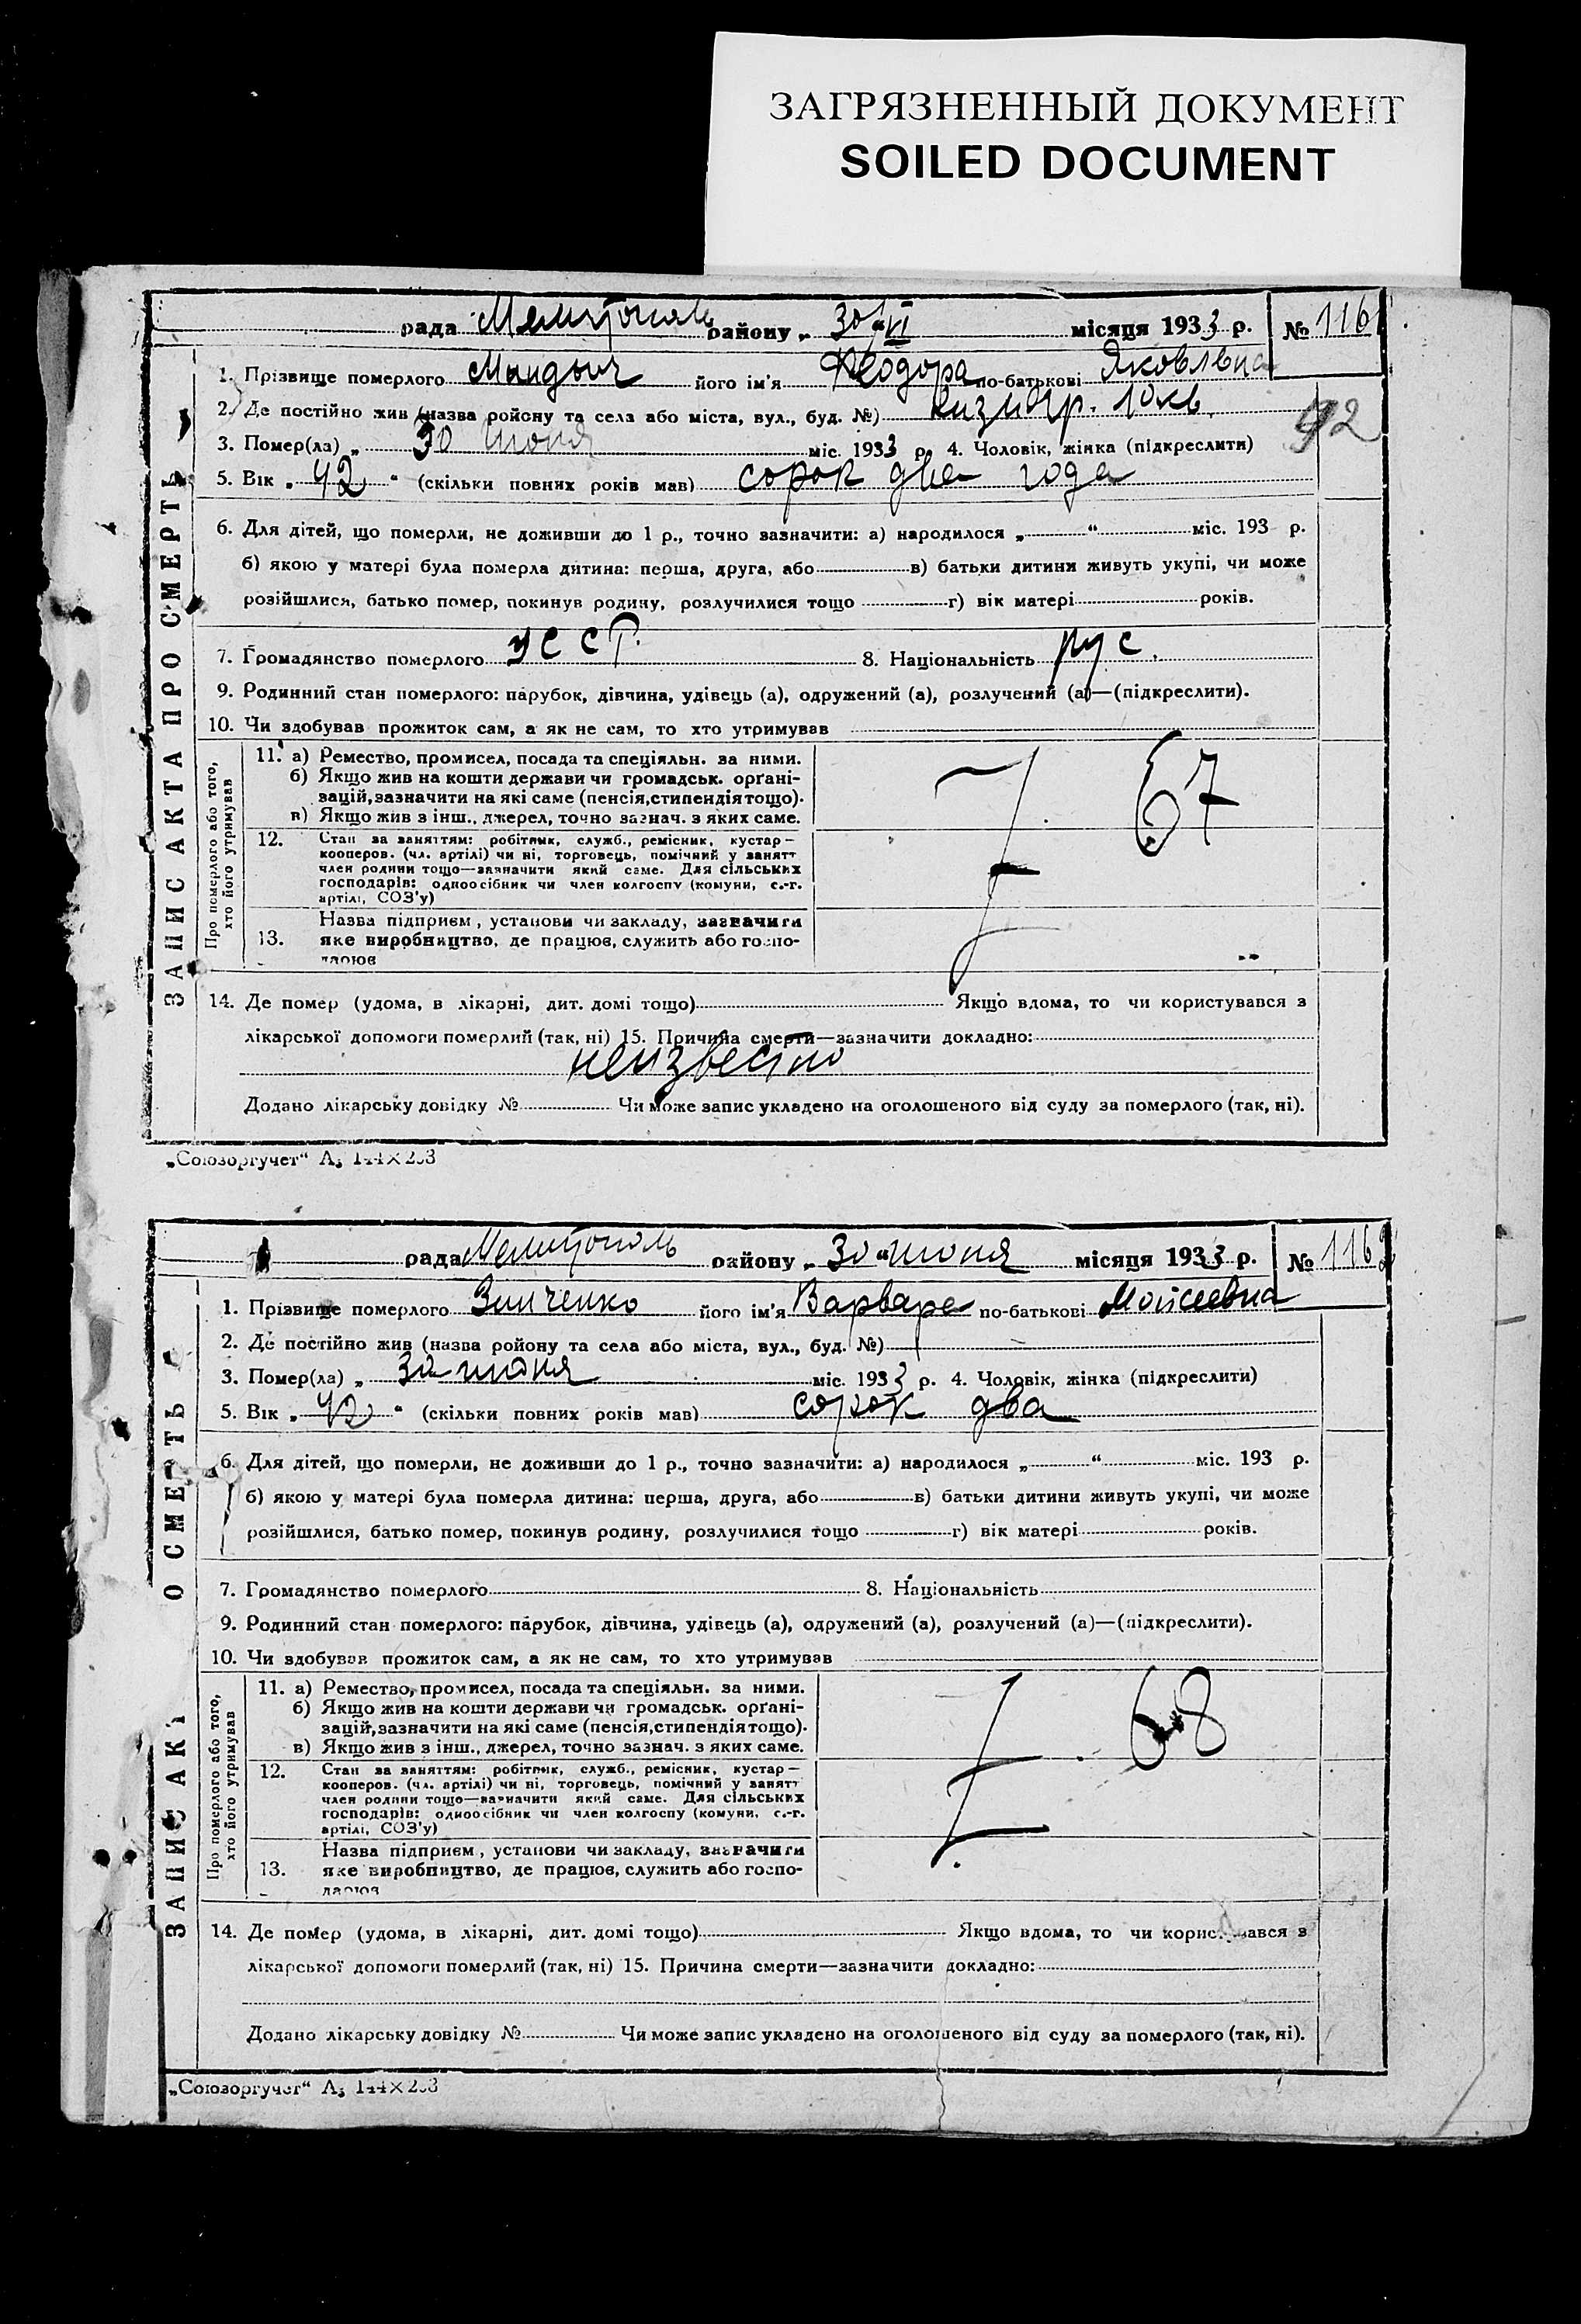 ЗАГРЯЗНЕННЫЙ ДОКУМЕНТ
SOILED DOCUMENT
рада Мелитополь району „ 30/VI місяця 1933 р. № 1161
1. Прізвище померлого його ім'я Феодора по-батькові Яковлевна
2. Де постійно жив (назва ройону та села або міста, вул., буд. №) Кизияр. 10 кв.
92
3. Помер(ла) „ 30 июня міс. 1933 р. 4. Чоловік, жінка (підкреслити)
5. Вік „ 42 “ (скільки повних років мав) сорок два года
6. Для дітей, що померли, не доживши до 1 р., точно зазначити: а) народилося „ “ міс. 193 р.
б) якою у матері була померла дитина: перша, друга, або в) батьки дитини живуть укупі, чи може
розійшлися, батько помер, покинув родину, розлучилися тощо г) вік матері років.
7. Громадянство померлого УССР. 8. Національність рус.
9. Родинний стан померлого: парубок, дівчина, удівець (а), одружений (а), розлучений (а)—(підкреслити).
10. Чи здобував прожиток сам, а як не сам, то хто утримував
ЗАПИС АКТА ПРО СМЕРТЬ
Про померлого або того,
хто його утримував
11. а) Ремество, промисел, посада та спеціяльн. за ними.
б) Якщо жив на кошти держави чи громадськ. орґані-
зацій, зазначити на які саме (пенсія, стипендія тощо).
в) Якщо жив з інш., джерел, точно зазнач. з яких саме.
67
12. Стан за заняттям: робітник, служб., ремісник, кустар—
кооперов. (чл. артілі) чи ні, торговець, помічний у занятт
член родини тощо—зазначити який саме. Для сільських
господарів: одноосібник чи член колгоспу (комуни, с.-г.
артілі, СОЗ'у)
13. Назва підприєм, установи чи закладу, зазначити
яке виробництво, де працює, служить або госпо-
дарює
14. Де помер (удома, в лікарні, дит. домі тощо) Якщо вдома, то чи користувався з
лікарської допомоги померлий (так, ні) 15. Причина смерти—зазначити докладно:
неизвестно
Додано лікарську довідку № Чи може запис укладено на оголошеного від суду за померлого (так, ні).
„Союзоргучет“ А5 144×203
рада Мелитополь району „ 30 “ июня місяця 1933 р. № 1162
1. Прізвище померлого Зинченко його ім'я Варвара по-батькові Мойсеевна
2. Де постійно жив (назва ройону та села або міста, вул., буд. №)
3. Помер(ла) „ 30 июня міс. 1933 р. 4. Чоловік, жінка (підкреслити)
5. Вік „ 42 “ (скільки повних років мав) сорок два
6. Для дітей, що померли, не доживши до 1 р., точно зазначити: а) народилося „ “ міс. 193 р.
б) якою у матері була померла дитина: перша, друга, або в) батьки дитини живуть укупі, чи може
розійшлися, батько помер, покинув родину, розлучилися тощо г) вік матері років.
7. Громадянство померлого 8. Національність
9. Родинний стан померлого: парубок, дівчина, удівець (а), одружений (а), розлучений (а)—(підкреслити).
10. Чи здобував прожиток сам, а як не сам, то хто утримував
ЗАПИС АКТ О СМЕРТЬ
Про померлого або того,
хто його утримував
11. а) Ремество, промисел, посада та спеціяльн. за ними.
б) Якщо жив на кошти держави чи громадськ. орґані-
зацій, зазначити на які саме (пенсія, стипендія тощо).
в) Якщо жив з інш., джерел, точно зазнач. з яких саме.
68
12. Стан за заняттям: робітник, служб., ремісник, кустар—
кооперов. (чл. артілі) чи ні, торговець, помічний у занятт
член родини тощо—зазначити який саме. Для сільських
господарів: одноосібник чи член колгоспу (комуни, с.-г.
артілі, СОЗ'у)
13. Назва підприєм, установи чи закладу, зазначити
яке виробництво, де працює, служить або госпо-
дарює
14. Де помер (удома, в лікарні, дит. домі тощо) Якщо вдома, то чи користувався з
лікарської допомоги померлий (так, ні) 15. Причина смерти—зазначити докладно:
Додано лікарську довідку № Чи може запис укладено на оголошеного від суду за померлого (так, ні).
„Союзоргучет“ А5 144×203